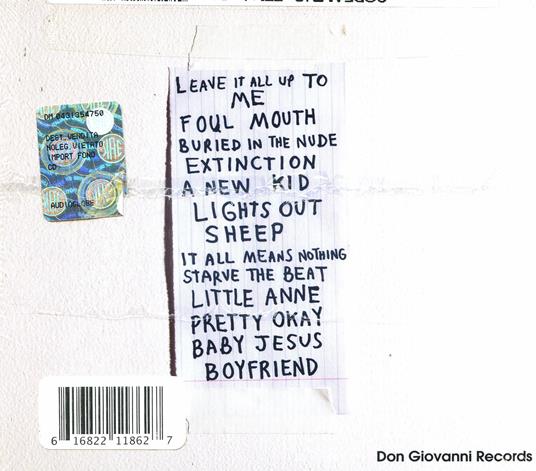 LEAVE IT ALL UP TO
ME
FOUL MOUTH
BURIED IN THE NUDE
EXTINCTION
A NEW KID
LIGHTS OUT
SHEEP
IT ALL MEANS NOTHING
STARVE THE BEAT
LITTLE ANNE
PRETTY OKAY
BABY JESUS
BOYFRIEND
DM 0431354750
DEST.VENDITA
NOLEG.VIETATO
IMPORT FONO
CD
AUDIOGLOBE
6 16822 11862 7
Don Giovanni Records